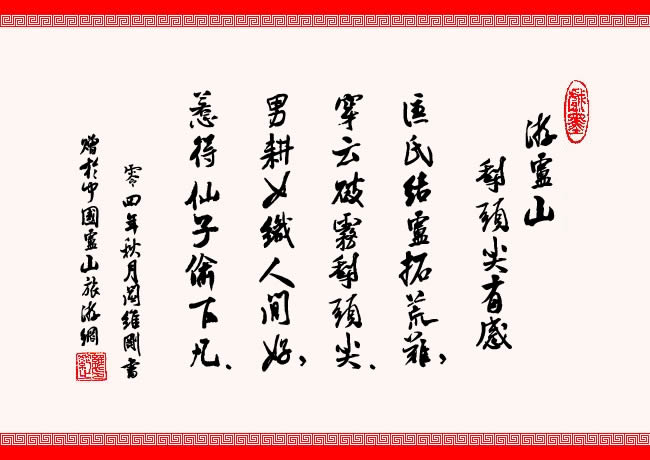 游靈山
犁頭尖有感
匡氏結靈拓荒難，
穿云破霧犁頭尖.
男耕女織人间好，
惹得仙子偷下凡.
零四年秋月閻維剛書
贈於中國靈山旅游網